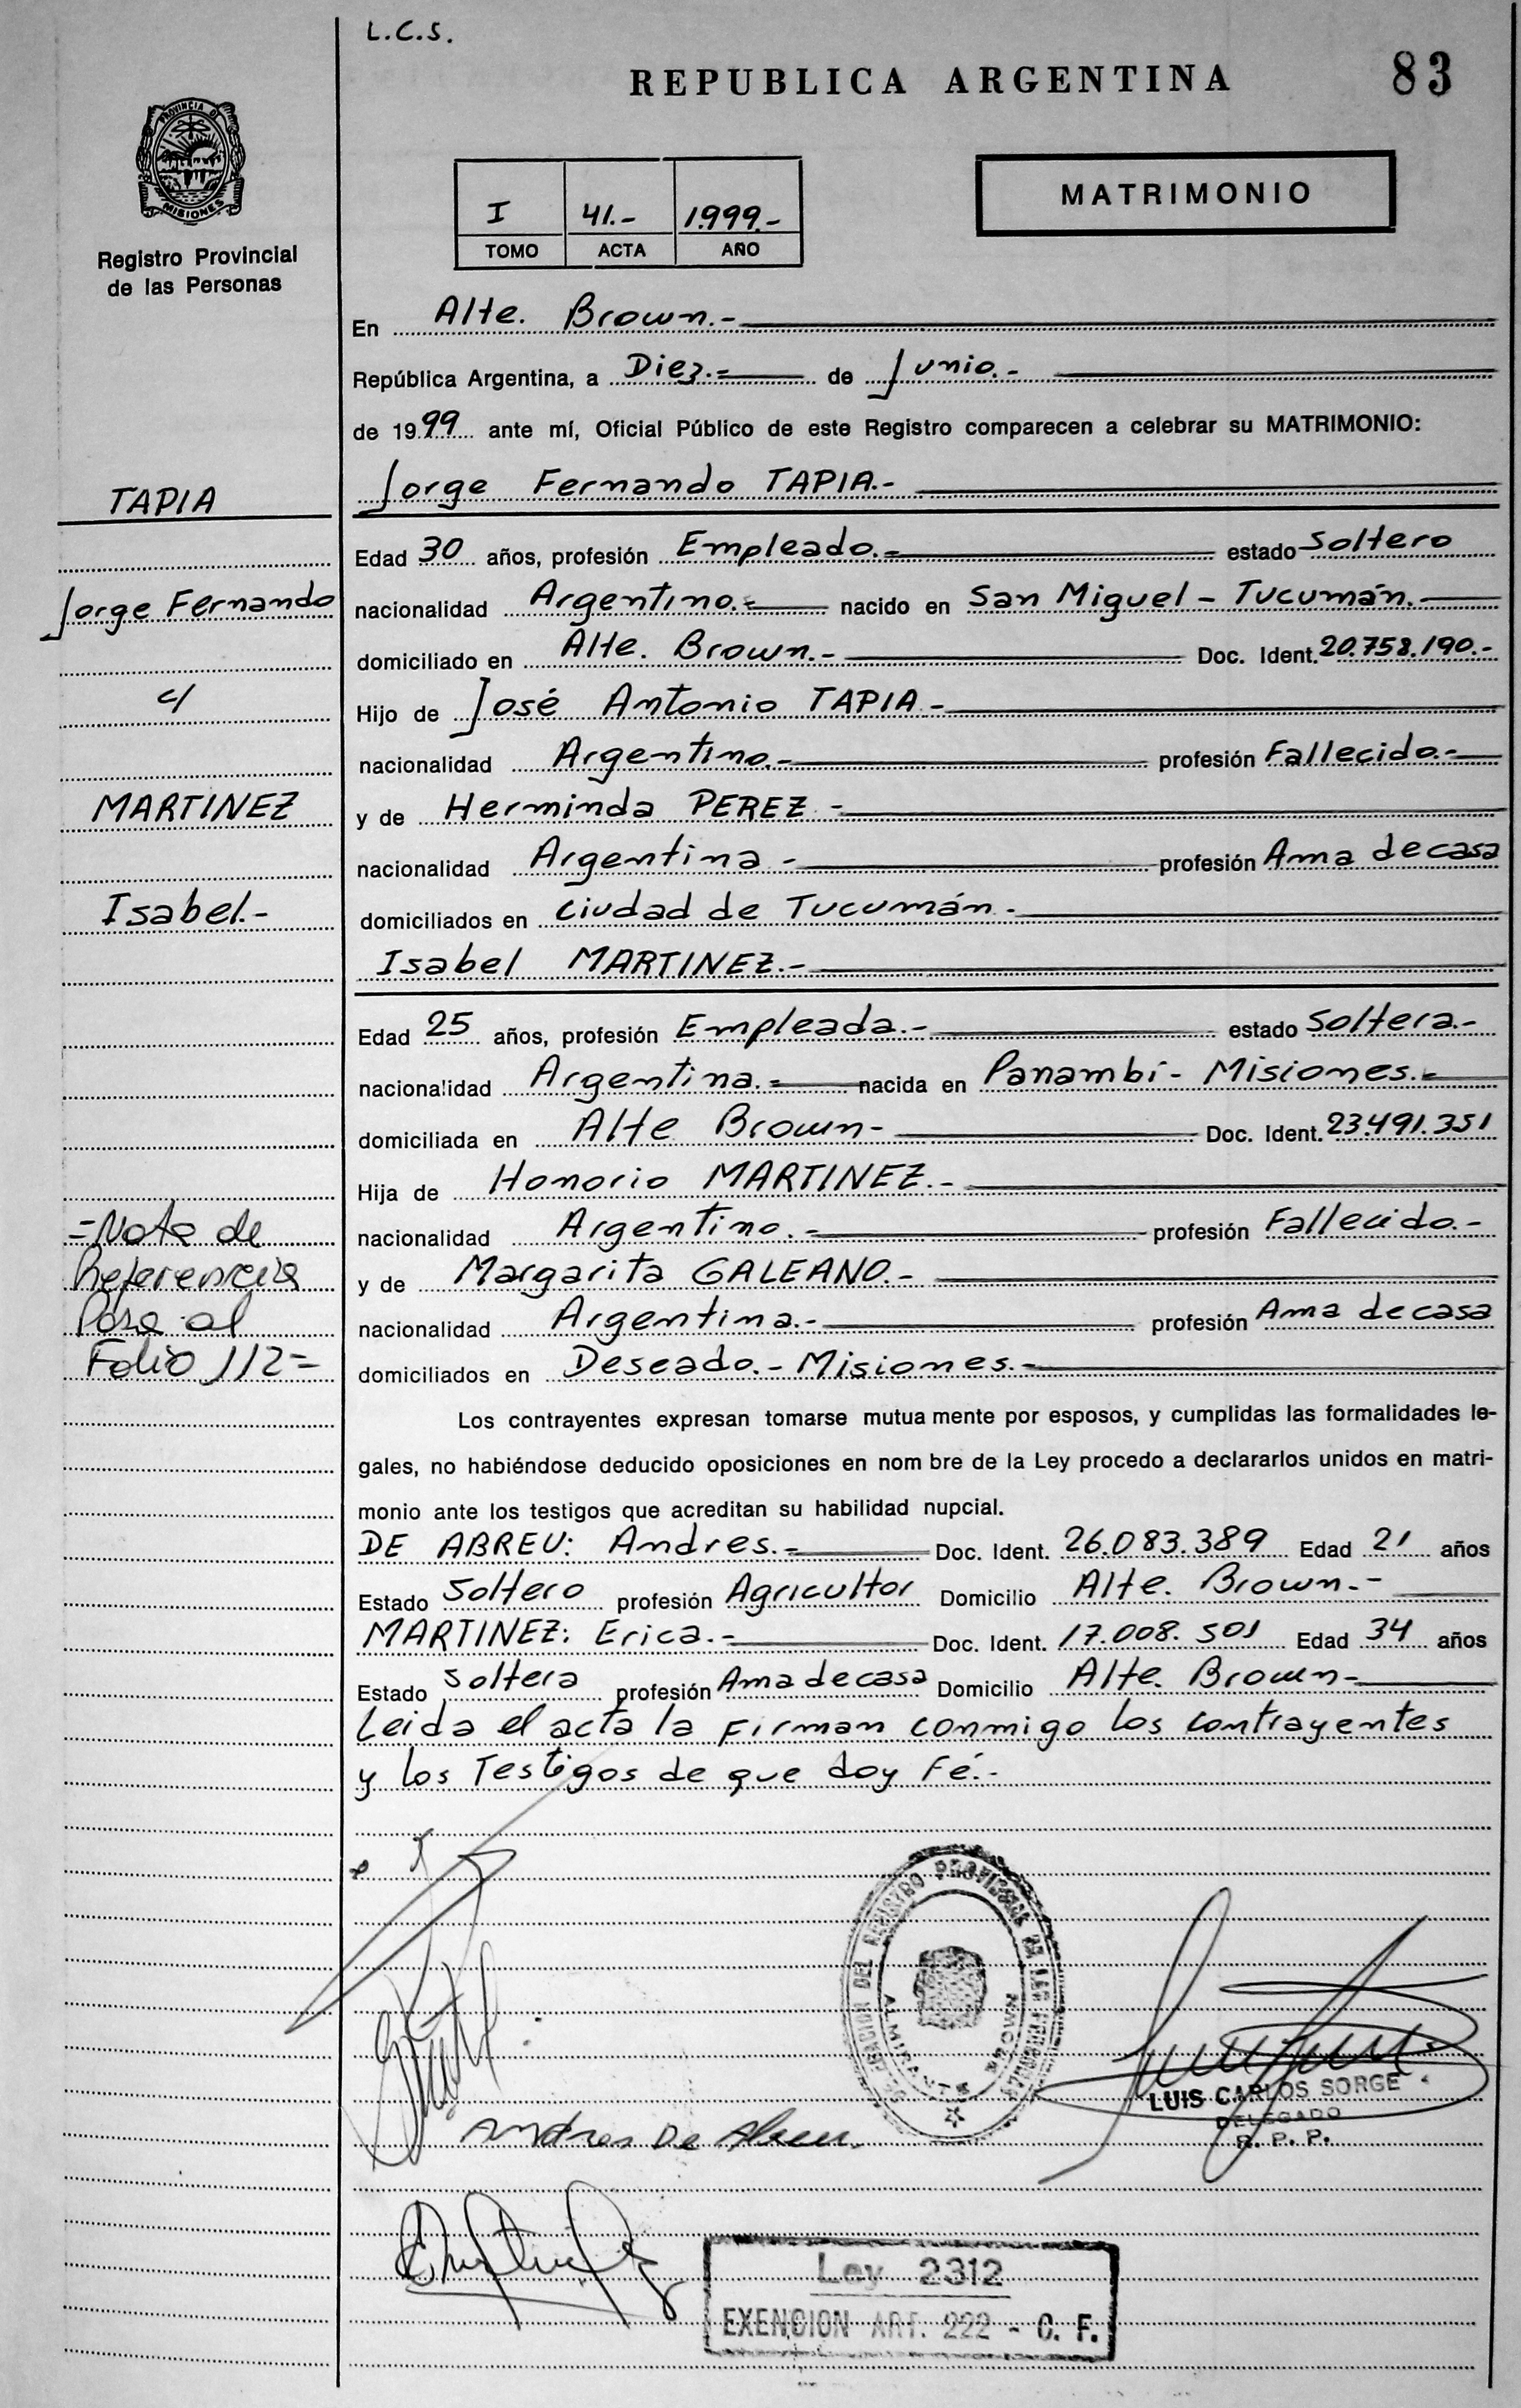 L.C.S.
REPUBLICA ARGENTINA
83
PROVINCIA DE
MISIONES
Registro Provincial
de las Personas
I 41.- 1.999.-
TOMO ACTA AÑO
MATRIMONIO
En Alte. Brown.-
República Argentina, a Diez.- de Junio.-
de 1999 ante mí, Oficial Público de este Registro comparecen a celebrar su MATRIMONIO:
TAPIA
Jorge Fernando TAPIA.-
Edad 30 años, profesión Empleado.- estado Soltero
Jorge Fernando
nacionalidad Argentino.- nacido en San Miguel - Tucumán.-
domiciliado en Alte. Brown.- Doc. Ident. 20.758.190.-
c/
Hijo de José Antonio TAPIA.-
nacionalidad Argentino.- profesión Fallecido.-
MARTINEZ
y de Herminda PEREZ.-
nacionalidad Argentina.- profesión Ama de casa
Isabel.-
domiciliados en Ciudad de Tucumán.-
Isabel MARTINEZ.-
Edad 25 años, profesión Empleada.- estado Soltera.-
nacionalidad Argentina.- nacida en Panambí - Misiones.-
domiciliada en Alte Brown- Doc. Ident. 23.491.351
Hija de Honorio MARTINEZ.-
nacionalidad Argentino.- profesión Fallecido.-
y de Margarita GALEANO.-
nacionalidad Argentina.- profesión Ama de casa
domiciliados en Deseado.- Misiones.-
=Nota de
Referencia
Pasa al
Folio 112=
Los contrayentes expresan tomarse mutua mente por esposos, y cumplidas las formalidades le-
gales, no habiéndose deducido oposiciones en nom bre de la Ley procedo a declararlos unidos en matri-
monio ante los testigos que acreditan su habilidad nupcial.
DE ABREU: Andres.- Doc. Ident. 26.083.389 Edad 21 años
Estado Soltero profesión Agricultor Domicilio Alte. Brown.-
MARTINEZ: Erica.- Doc. Ident. 17.008.501 Edad 34 años
Estado Soltera profesión Ama de casa Domicilio Alte. Brown-
Leida el acta la Firman conmigo los contrayentes
y los Testigos de que doy Fé.-
DEL REGISTRO PROVINCIAL DE LAS PERSONAS
ALMIRANTE BROWN
LUIS CARLOS SORGE
DELEGADO
R. P. P.
Andres De Abreu.
Ley 2312
EXENCION ART. 222 - C. F.